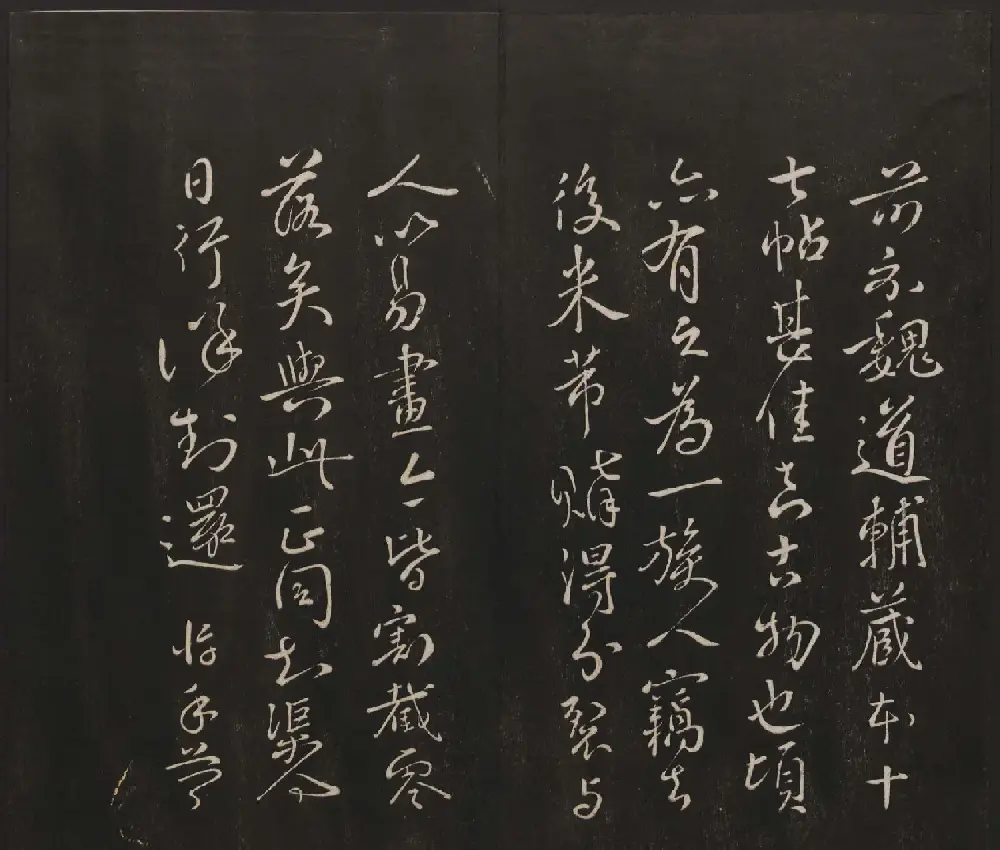 前示魏道輔藏本十
七帖甚佳真古物也頃
亦有之為一族人竊去
後米芾購得分裂与
人以易畫今皆割截零
落矣與此正同知渠今
日行謹封還 惇手